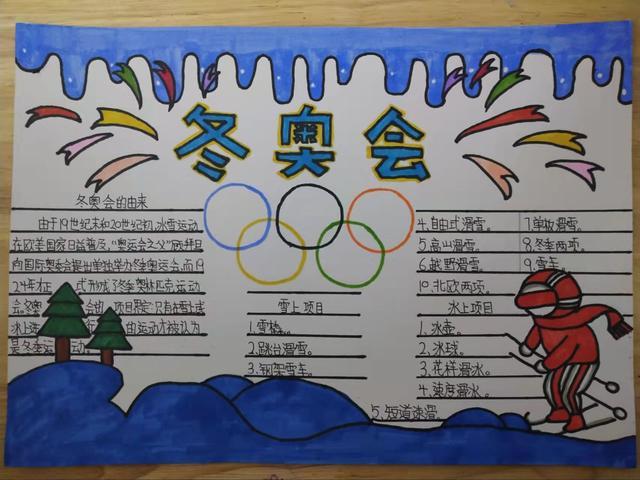 冬奥会
冬奥会的由来
由于19世纪末和20世纪初,冰雪运动
在欧美国家日益普及,“奥运会之父”顾拜旦
向国际奥委会提出单独举办冬季奥运会,而19
24年才正式形成了冬季奥林匹克运动
会。冬奥会的项目限定:只有在雪上或
冰上进行的运动才被认为
是冬季运动。
雪上项目
1.雪橇。
2.跳台滑雪。
3.钢架雪车。
4.自由式滑雪。
5.高山滑雪。
6.越野滑雪。
7.单板滑雪。
8.冬季两项。
9.雪车。
10.北欧两项。
冰上项目
1.冰壶。
2.冰球。
3.花样滑冰。
4.速度滑冰。
5.短道速滑。